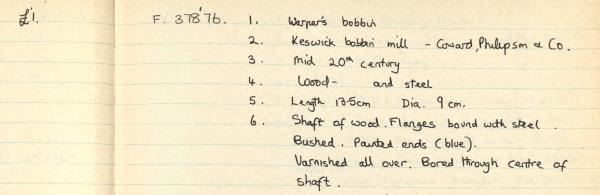 £1. F. 378'76. 1. Warper's bobbin
2. Keswick bobbin mill - Coward, Philipson & Co.
3. Mid 20th century
4. Wood - and steel
5. Length 13.5cm Dia. 9 cm.
6. Shaft of wood. Flanges bound with steel.
Bushed. Painted ends (blue).
Varnished all over. Bored through centre of
shaft.